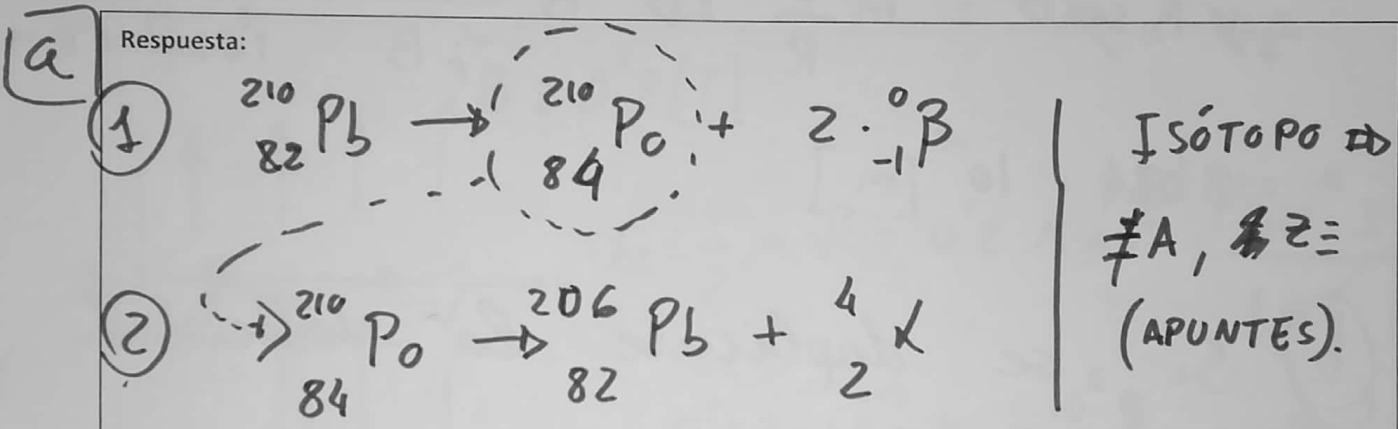 a
Respuesta:
1 ²¹⁰₈₂Pb → ²¹⁰₈₄Po + 2 · ⁰₋₁β
2 ²¹⁰₈₄Po → ²⁰⁶₈₂Pb + ⁴₂α
ISÓTOPO ⇒
≠A, Z=
(APUNTES).